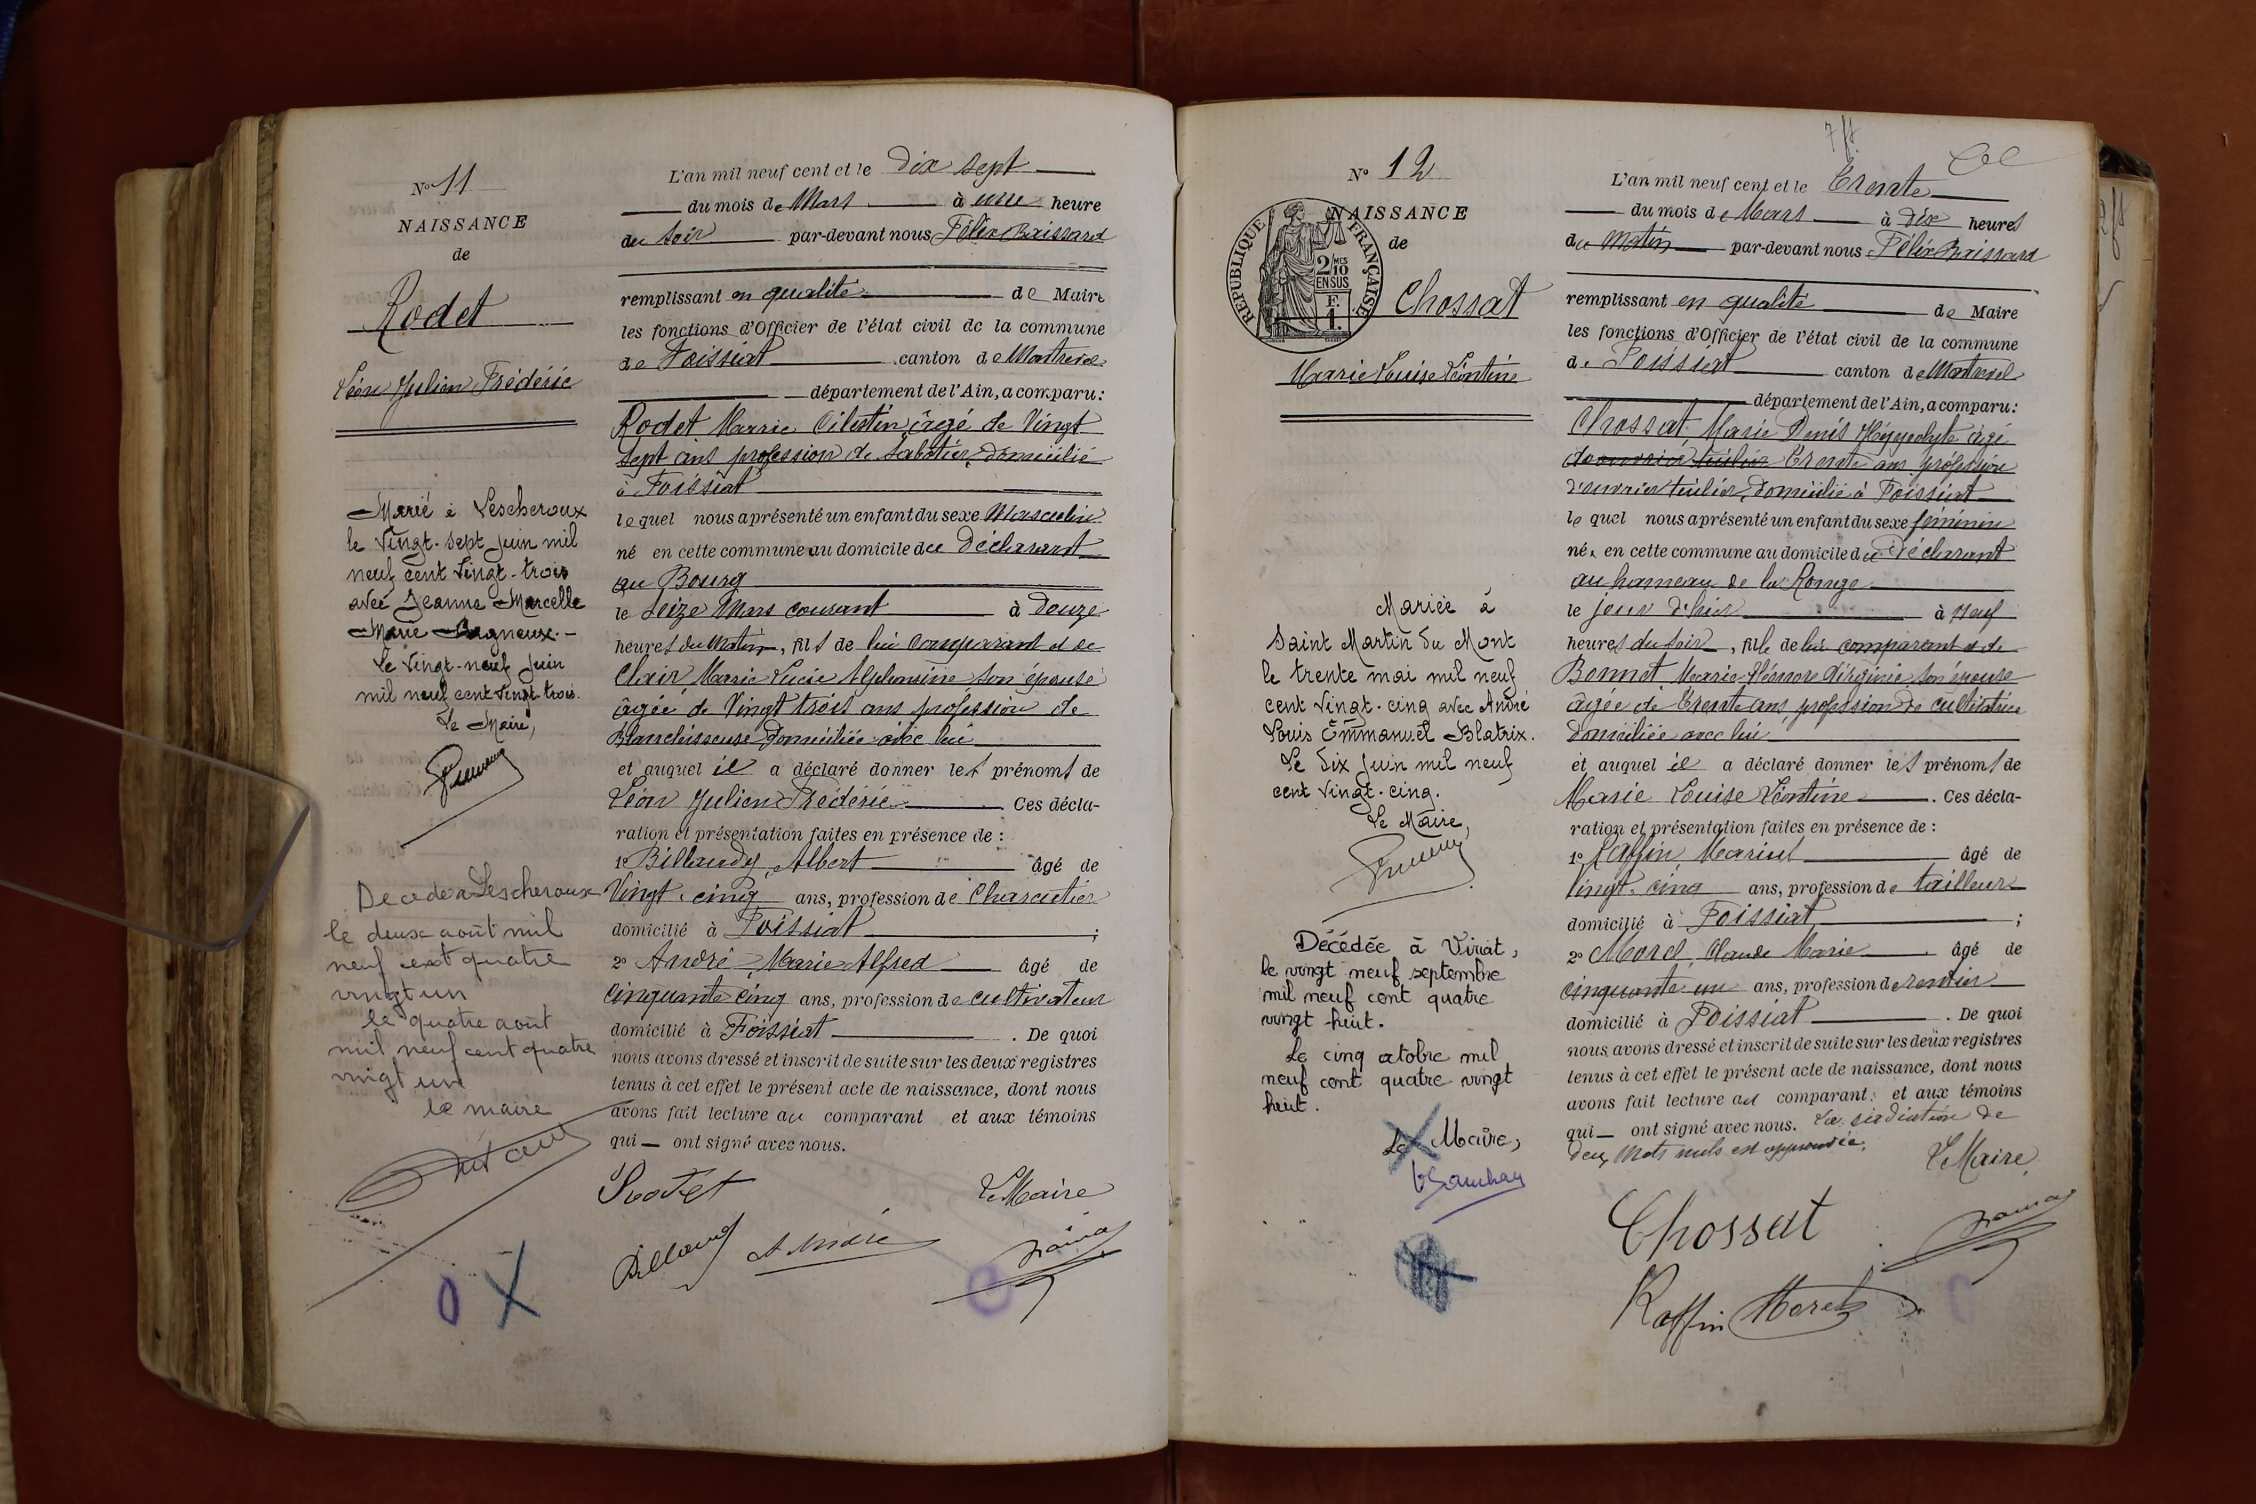 Nº 11
NAISSANCE
de
Rodet
Léon Julien Frédéric
Marié à Lescheroux
le Vingt-sept Juin mil
neuf cent Vingt-trois
avec Jeanne Marcelle
Marie Bagneux.-
Le Vingt-neuf Juin
mil neuf cent Vingt-trois.
Le Maire,
Decede a Lescheroux
le deux août mil
neuf cent quatre
vingt un
le quatre août
mil neuf cent quatre
vingt un
le maire
L'an mil neuf cent et le Dix sept
du mois de Mars à une heure
du Soir par-devant nous Félix Braissard
remplissant en qualité de Maire
les fonctions d'Officier de l'état civil de la commune
de Foissiat canton de Montrevel
département de l'Ain, a comparu:
Rodet Marie Célestin âgé de Vingt
Sept ans profession de Sabotier, domicilié
à Foissiat
lequel nous a présenté un enfant du sexe Masculin
né en cette commune au domicile du Déclarant
au Bourg
le Seize Mars courant à Douze
heures du Matin, fils de lui comparant et de
Clair Marie Lucie Alphonsine son épouse
âgée de Vingt trois ans profession de
Blanchisseuse domiciliée avec lui
et auquel il a déclaré donner les prénoms de
Léon Julien Frédéric Ces décla-
ration et présentation faites en présence de :
1º Billoudy Albert âgé de
Vingt-cinq ans, profession de Charcutier
domicilié à Foissiat ;
2º André Marie Alfred âgé de
cinquante cinq ans, profession de cultivateur
domicilié à Foissiat . De quoi
nous avons dressé et inscrit de suite sur les deux registres
tenus à cet effet le présent acte de naissance, dont nous
avons fait lecture au comparant et aux témoins
qui ont signé avec nous.
Rodet Le Maire
A André
Nº 12
NAISSANCE
de
REPUBLIQUE FRANÇAISE
2/10 MES
EN SUS
F.
1.
Chossat
Marie Louise Léontine
Mariée à
Saint Martin du Mont
le trente mai mil neuf
cent vingt-cinq avec André
Louis Emmanuel Blatrix.
Le dix juin mil neuf
cent vingt-cinq.
Le Maire,
Décédée à Viriat,
le vingt neuf septembre
mil neuf cent quatre
vingt-huit.
Le cinq octobre mil
neuf cent quatre vingt
huit.
Le Maire,
L'an mil neuf cent et le Trente
du mois de Mars à dix heures
du Matin par-devant nous Félix Braissard
remplissant en qualité de Maire
les fonctions d'Officier de l'état civil de la commune
de Foissiat canton de Montrevel
département de l'Ain, a comparu:
Chossat Marie Denis Hyppolyte âgé
de ouvrier tuilier Trente ans profession
d'ouvrier tuilier, domicilié à Foissiat
lequel nous a présenté un enfant du sexe féminin
né en cette commune au domicile du Déclarant
au hameau de la Ronge
le jour d'hier à Neuf
heures du soir, fille de lui comparant et de
Bonnet Marie Eléonore Virginie son épouse
âgée de Trente ans profession de cultivatrice
domiciliée avec lui
et auquel il a déclaré donner les prénoms de
Marie Louise Léontine . Ces décla-
ration et présentation faites en présence de :
1º Raffin Marius âgé de
Vingt-cinq ans, profession de tailleur
domicilié à Foissiat ;
2º Morel, Claude Marie âgé de
cinquante-un ans, profession de rentier
domicilié à Foissiat . De quoi
nous avons dressé et inscrit de suite sur les deux registres
tenus à cet effet le présent acte de naissance, dont nous
avons fait lecture au comparant et aux témoins
qui ont signé avec nous. La radiation de
deux mots nuls est approuvée.
Le Maire
Chossat
Raffin Morel